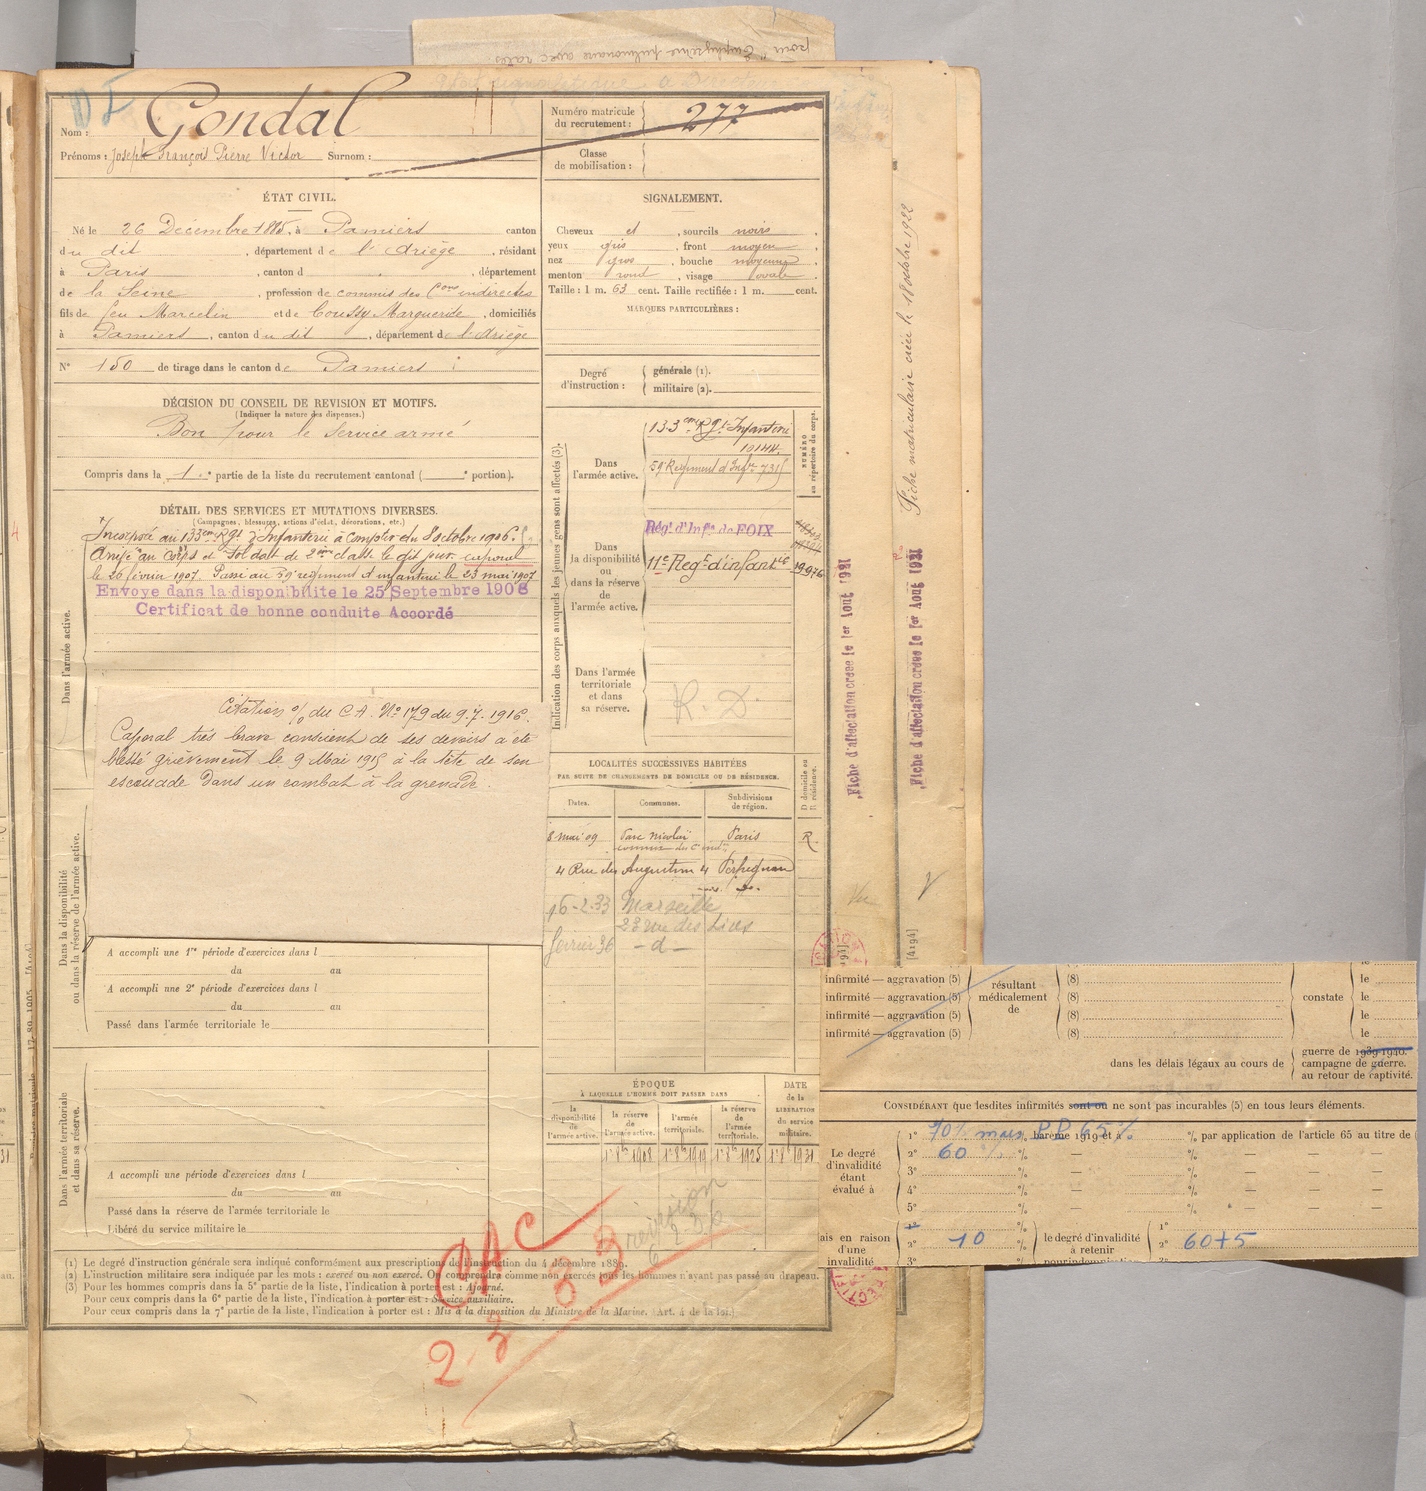 pour "Emphysème pulmonaire avec rales.
DI
Nom : Gondal
Prénoms : Joseph François Pierre Victor Surnom :
Numéro matricule
du recrutement : 277
Classe
de mobilisation :
ÉTAT CIVIL.
Né le 26 Décembre 1885, à Pamiers canton
du dit, département de l'Ariège, résidant
à Paris, canton d , département
de la Seine, profession de commis des Cons indirectes
fils de feu Marcelin et de Coussy Marguerite, domiciliés
à Pamiers, canton du dit, département de l'Ariège
N° 150 de tirage dans le canton de Pamiers
DÉCISION DU CONSEIL DE REVISION ET MOTIFS.
(Indiquer la nature des dispenses.)
Bon pour le service armé
Compris dans la 1re partie de la liste du recrutement cantonal ( e portion).
SIGNALEMENT.
Cheveux et , sourcils noirs ,
yeux gris , front moyen ,
nez gros , bouche moyenne ,
menton rond , visage ovale .
Taille : 1 m. 63 cent. Taille rectifiée : 1 m. cent.
MARQUES PARTICULIÈRES :
Degré
d'instruction :
générale (1).
militaire (2).
DÉTAIL DES SERVICES ET MUTATIONS DIVERSES.
(Campagnes, blessures, actions d'éclat, décorations, etc.)
Dans l'armée active.
Incorporé au 133eme Rgt d'Infanterie à compter du 8 octobre 1906.
Arrivé au corps et soldat de 2eme classe le dit jour. caporal
le 26 février 1907. Passé au 59e régiment d'infanterie le 23 mai 1907
Envoyé dans la disponibilité le 25 Septembre 1908
Certificat de bonne conduite Accordé
Citation % du C.A. N° 179 du 9.7.1916.
Caporal très brave conscient de ses devoirs a été
blessé grièvement le 9 Mai 1915 à la tête de son
escouade dans un combat à la grenade.
Dans la disponibilité
ou dans la réserve de l'armée active.
A accompli une 1re période d'exercices dans l
du au
A accompli une 2e période d'exercices dans l
du au
Passé dans l'armée territoriale le
Dans l'armée territoriale
et dans sa réserve.
A accompli une période d'exercices dans l
du au
Passé dans la réserve de l'armée territoriale le
Libéré du service militaire le
Indication des corps auxquels les jeunes gens sont affectés (3).
NUMÉRO
au répertoire du corps.
Dans
l'armée active.
133eme Rgt Infanterie
10144.
59e Régiment d'Infie 7315
Dans
la disponibilité
ou
dans la réserve
de
l'armée active.
Régt d'Infie de FOIX
11e Regt d'infantie 19976
Dans l'armée
territoriale
et dans
sa réserve.
R. D.
LOCALITÉS SUCCESSIVES HABITÉES
PAR SUITE DE CHANGEMENTS DE DOMICILE OU DE RÉSIDENCE.
Dates. Communes. Subdivisions
de région.
D domicile ou
R résidence.
8 mai 09 Parc Nicolaï Paris R.
commis des C. ind.
4 Rue des Augustins 4 Perpignan
16-2-33 Marseille
23 rue des Lices
février 36 - d -
ÉPOQUE
À LAQUELLE L'HOMME DOIT PASSER DANS
la
disponibilité
de
l'armée active.
la réserve
de
l'armée active.
l'armée
territoriale.
la réserve
de
l'armée
territoriale.
DATE
de la
LIBÉRATION
du service
militaire.
revision
CAC
2. 3 33
(1) Le degré d'instruction générale sera indiqué conformément aux prescriptions de l'instruction du 4 décembre 1889.
(2) L'instruction militaire sera indiquée par les mots : exercé ou non exercé. On comprendra comme non exercés tous les hommes n'ayant pas passé au drapeau.
(3) Pour les hommes compris dans la 5e partie de la liste, l'indication à porter est : Ajourné.
Pour ceux compris dans la 6e partie de la liste, l'indication à porter est : Service auxiliaire.
Pour ceux compris dans la 7e partie de la liste, l'indication à porter est : Mis à la disposition du Ministre de la Marine. (Art. 4 de la loi.)
Fiche d'affectation créée le 1er Août 1921
Fiche d'affectation créée le 1er Août 1921
Fiche matriculaire créée le 18 octobre 1922
Vu
V
[4194]
infirmité — aggravation (5)
infirmité — aggravation (5)
infirmité — aggravation (5)
infirmité — aggravation (5)
résultant
médicalement
de
(8)
(8)
(8)
(8)
constate
le
le
le
le
dans les délais légaux au cours de
guerre de 1939-1940.
campagne de guerre.
au retour de captivité.
CONSIDÉRANT que lesdites infirmités sont ou ne sont pas incurables (5) en tous leurs éléments.
Le degré
d'invalidité
étant
évalué à
1° 70% mais P.P. 65% barème 1919 et à % par application de l'article 65 au titre de
2° 60 % % — % — — —
3° % — % — — —
4° % — % — — —
5° % — % — — —
ais en raison
d'une
invalidité
1° %
2° 10 %
3° %
le degré d'invalidité
à retenir
1°
2° 60+5